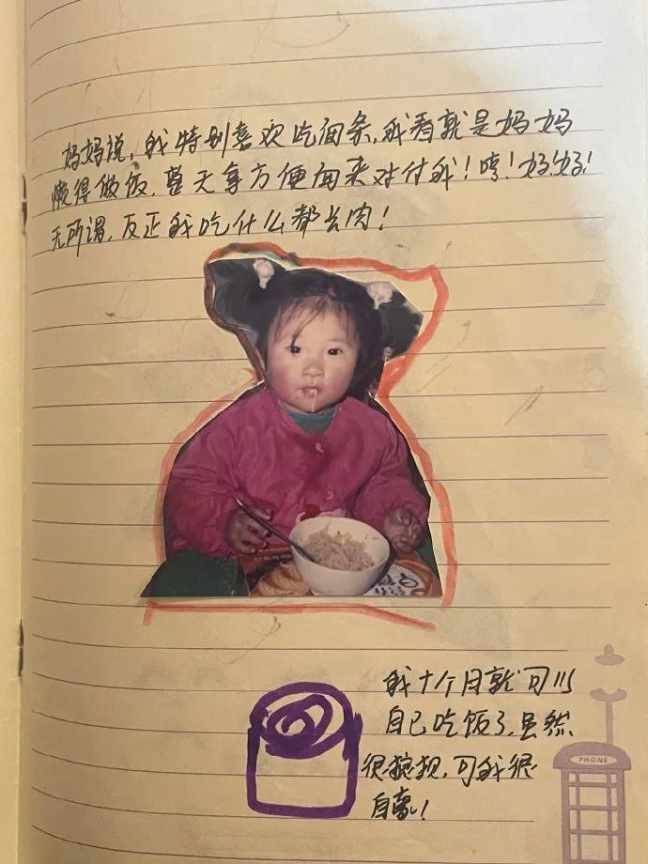 妈妈说,我特别喜欢吃面条,我看就是妈妈
懒得做饭,整天拿方便面来对付我!哼!妈妈!
无所谓,反正我吃什么都长肉!
我十个月就可以
自己吃饭了,虽然
很狼狈,可我很
自豪!
PHONE